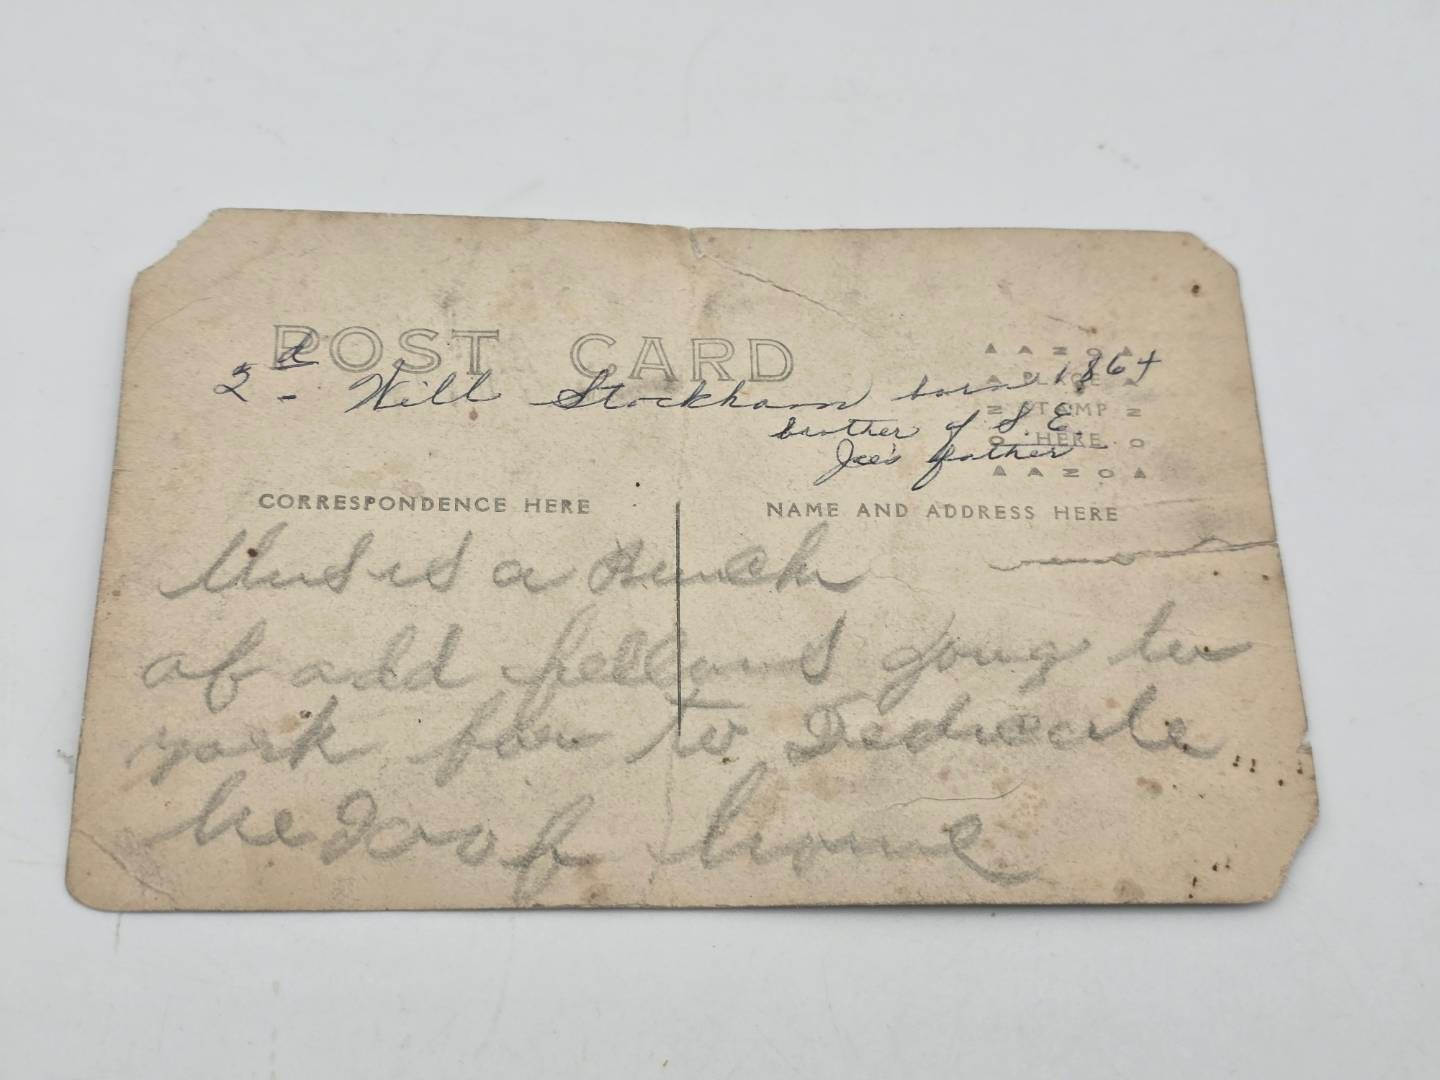 POST CARD
2d - Will Stockham born 1864
brother of S. E.
Joe's father
AZOA
PLACE
STAMP
HERE
AZOA
CORRESPONDENCE HERE
NAME AND ADDRESS HERE
this is a Bunch
of odd fellows going to
york for to Dedicate
he Ioof home